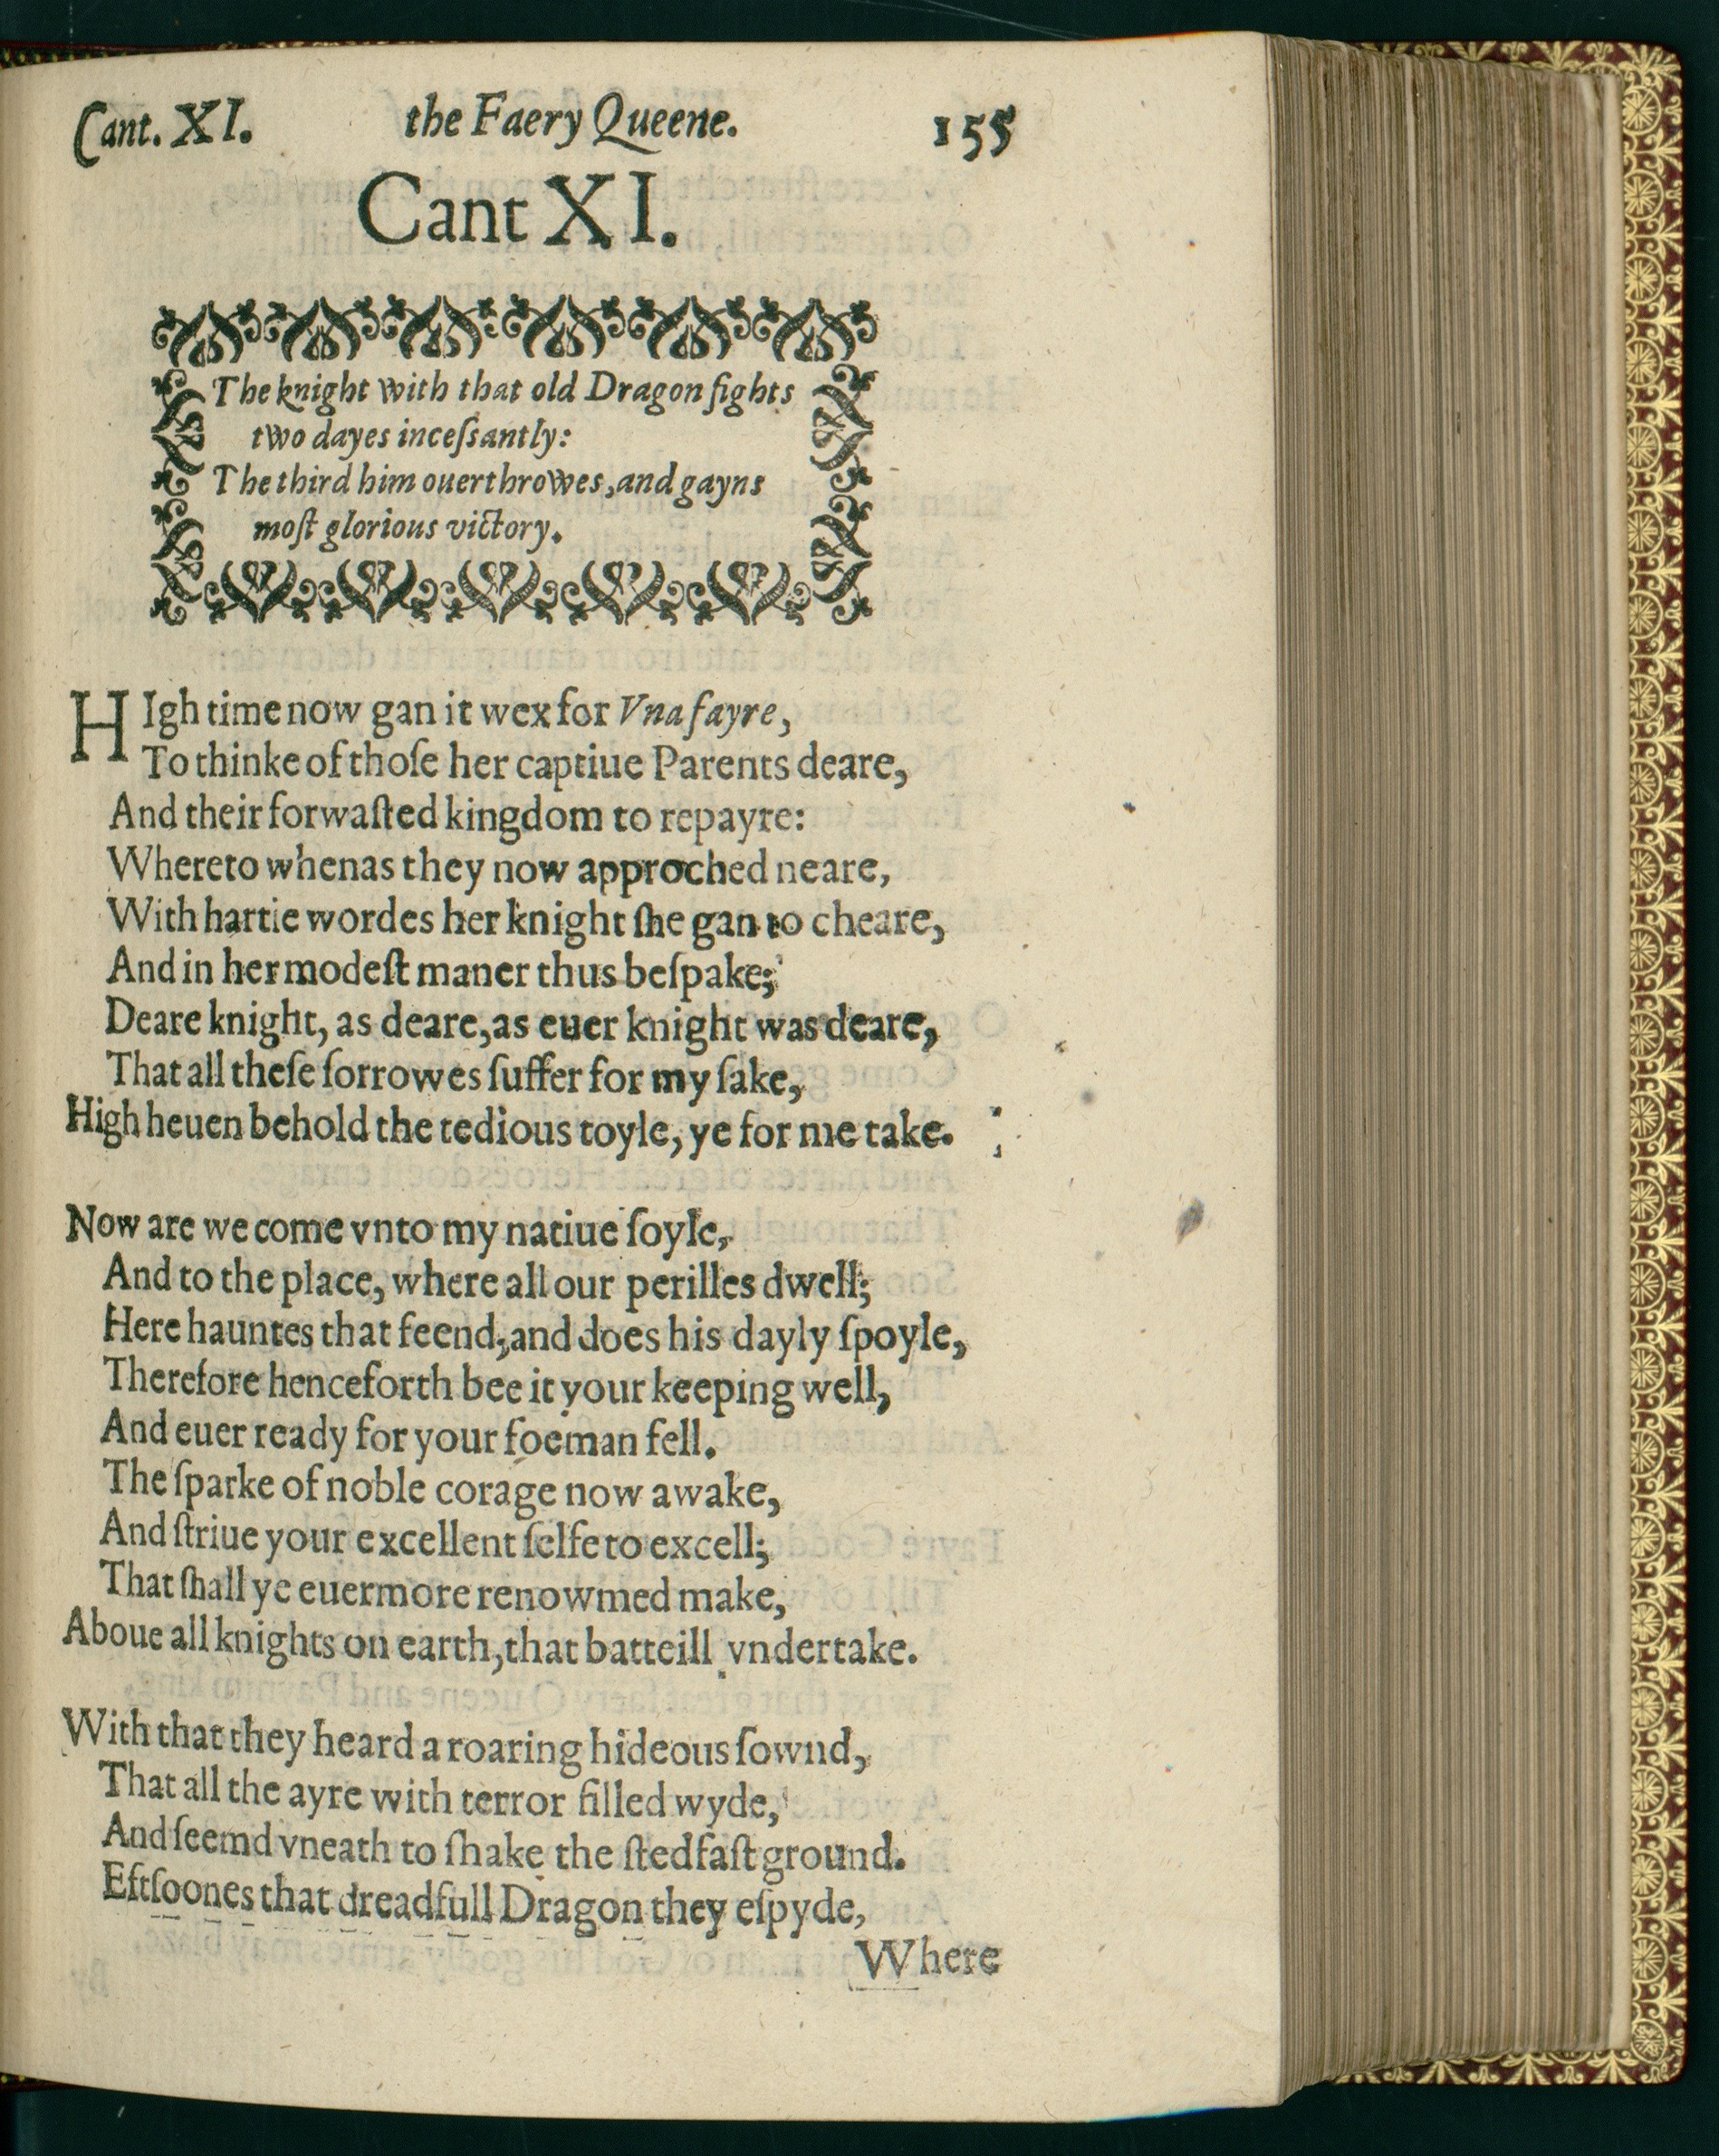 Cant. XI. the Faery Queene. 155
Cant XI.
The knight with that old Dragon fights
two dayes inceſsantly:
The third him ouerthrowes, and gayns
moſt glorious victory.
HIgh time now gan it wex for Vna fayre,
To thinke of thoſe her captiue Parents deare,
And their forwaſted kingdom to repayre:
Whereto whenas they now approched neare,
With hartie wordes her knight ſhe gan to cheare,
And in her modeſt maner thus beſpake;
Deare knight, as deare, as euer knight was deare,
That all theſe ſorrowes ſuffer for my ſake,
High heuen behold the tedious toyle, ye for me take.
Now are we come vnto my natiue ſoyle,
And to the place, where all our perilles dwell;
Here hauntes that feend, and does his dayly ſpoyle,
Therefore henceforth bee it your keeping well,
And euer ready for your foeman fell.
The ſparke of noble corage now awake,
And ſtriue your excellent ſelfe to excell;
That ſhall ye euermore renowmed make,
Aboue all knights on earth, that batteill vndertake.
With that they heard a roaring hideous ſownd,
That all the ayre with terror filled wyde,
And ſeemd vneath to ſhake the ſtedfaſt ground.
Eftſoones that dreadfull Dragon they eſpyde,
Where